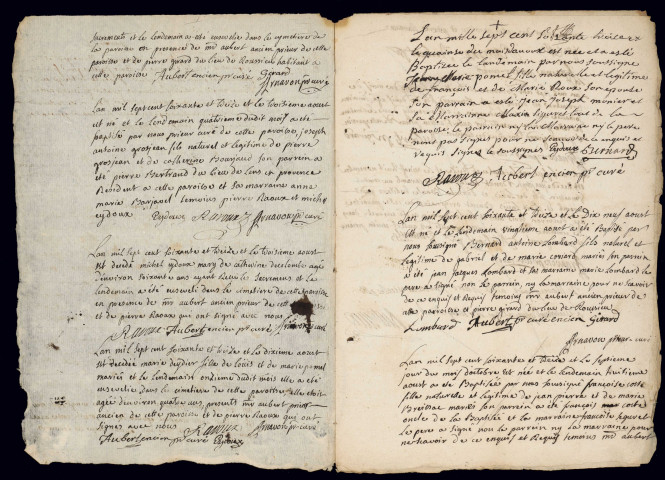 sacrements et le lendemain a esté ensevelie dans le cymetiere de
la paroisse en presence de mr aubert ancien prieur de cette
paroisse et de pierre girard du lieu de habitant a
cette paroisse Aubert encien pr curé Gerard
Arnavon pr curé
Lan mil sept cent soixante et treize et le troisième aoust
est né et le lendemain quatrieme dudit mois a été
baptisé par nous prieur curé de cette paroisse joseph
antoine grosjean fils naturel et legitime de pierre
grosjean et de catherine Bourjaud son parrein a
été pierre Bertrand du lieu de Lens en provence
Resident a cette paroisse et sa marraine anne
marie Borjaud temoins pierre Raoux et michel
eydoux Peydoux Raoux Arnavon pr curé
Lan mil sept cent soixante et treize et le troisieme aoust
est decedé michel eydoux mary de catherine agé
denviron soixante ans ayant Receu les sacremens et le
lendemain a été enseveli dans le cimetiere de cette paroisse
en presence de mr aubert ancien prieur de cette
et de pierre Raoux qui ont signé avec nous
Raoux Aubert encien pr curé Arnavon pr curé
Lan mil sept cent soixante et treize et le dixieme aoust
est decedée marie fille de et de marie
mariés et le lendemain onzieme dudit mois elle a été
ensevelie dans le cimetiere de cette parroisse elle etoit
agée denviron quatre ans presents mr aubert prieur
ancien de cette paroisse et de pierre Raoux qui ont
signés avec nous Raoux Arnavon pr curé
Aubert encien pr curé Peydoux
Lan mille sept cent soixante treize et
le quinze du mois daoux est née et a esté
Baptisée le lendemain par nous soussigné
Marie fille naturelle et legitime
de françois et de Marie Roux son epouse
son parrain a esté Jean Joseph monier et
sa Marraine Marie tous de la
paroisse le parrain ny la Marraine ny le pere
nont pas signés pour ne scavoir de ce enquis et
requis signés le soussignés Peydoux Bernard
Raoux Aubert encien pr curé
Lan mil sept cent soixante et treize et le Dix neuf aoust
est né et le lendemain vingtieme aoust a été Baptisé par
nous soussigné Bernard antoine Lombard fils naturel et
legitime de gabriel et de marie couard mariés son parrein
a été jean jacques Lombard et la marraine marie Lombard le
pere a signé non le parrein ny la marraine pour ne scavoir
de ce enquis et Requis temoins mr aubert ancien prieur de
cette parroisse et pierre girard du lieu de
Lombard Aubert pr curé encien Girard
Arnavon prieur curé
Lan mil sept cent soixante et treize et le septieme
jour du mois doctobre est née et le lendemain huitieme
aoust a été Baptisée par nous soussigné françoise coste
fille naturelle et legitime de jean pierre et de marie
mariés son parrein a été françois coste
oncle de la Baptisée et la marraine
le pere a signé non le parrein ny la marraine pour
ne scavoir de ce enquis et Requis temoins mr aubert